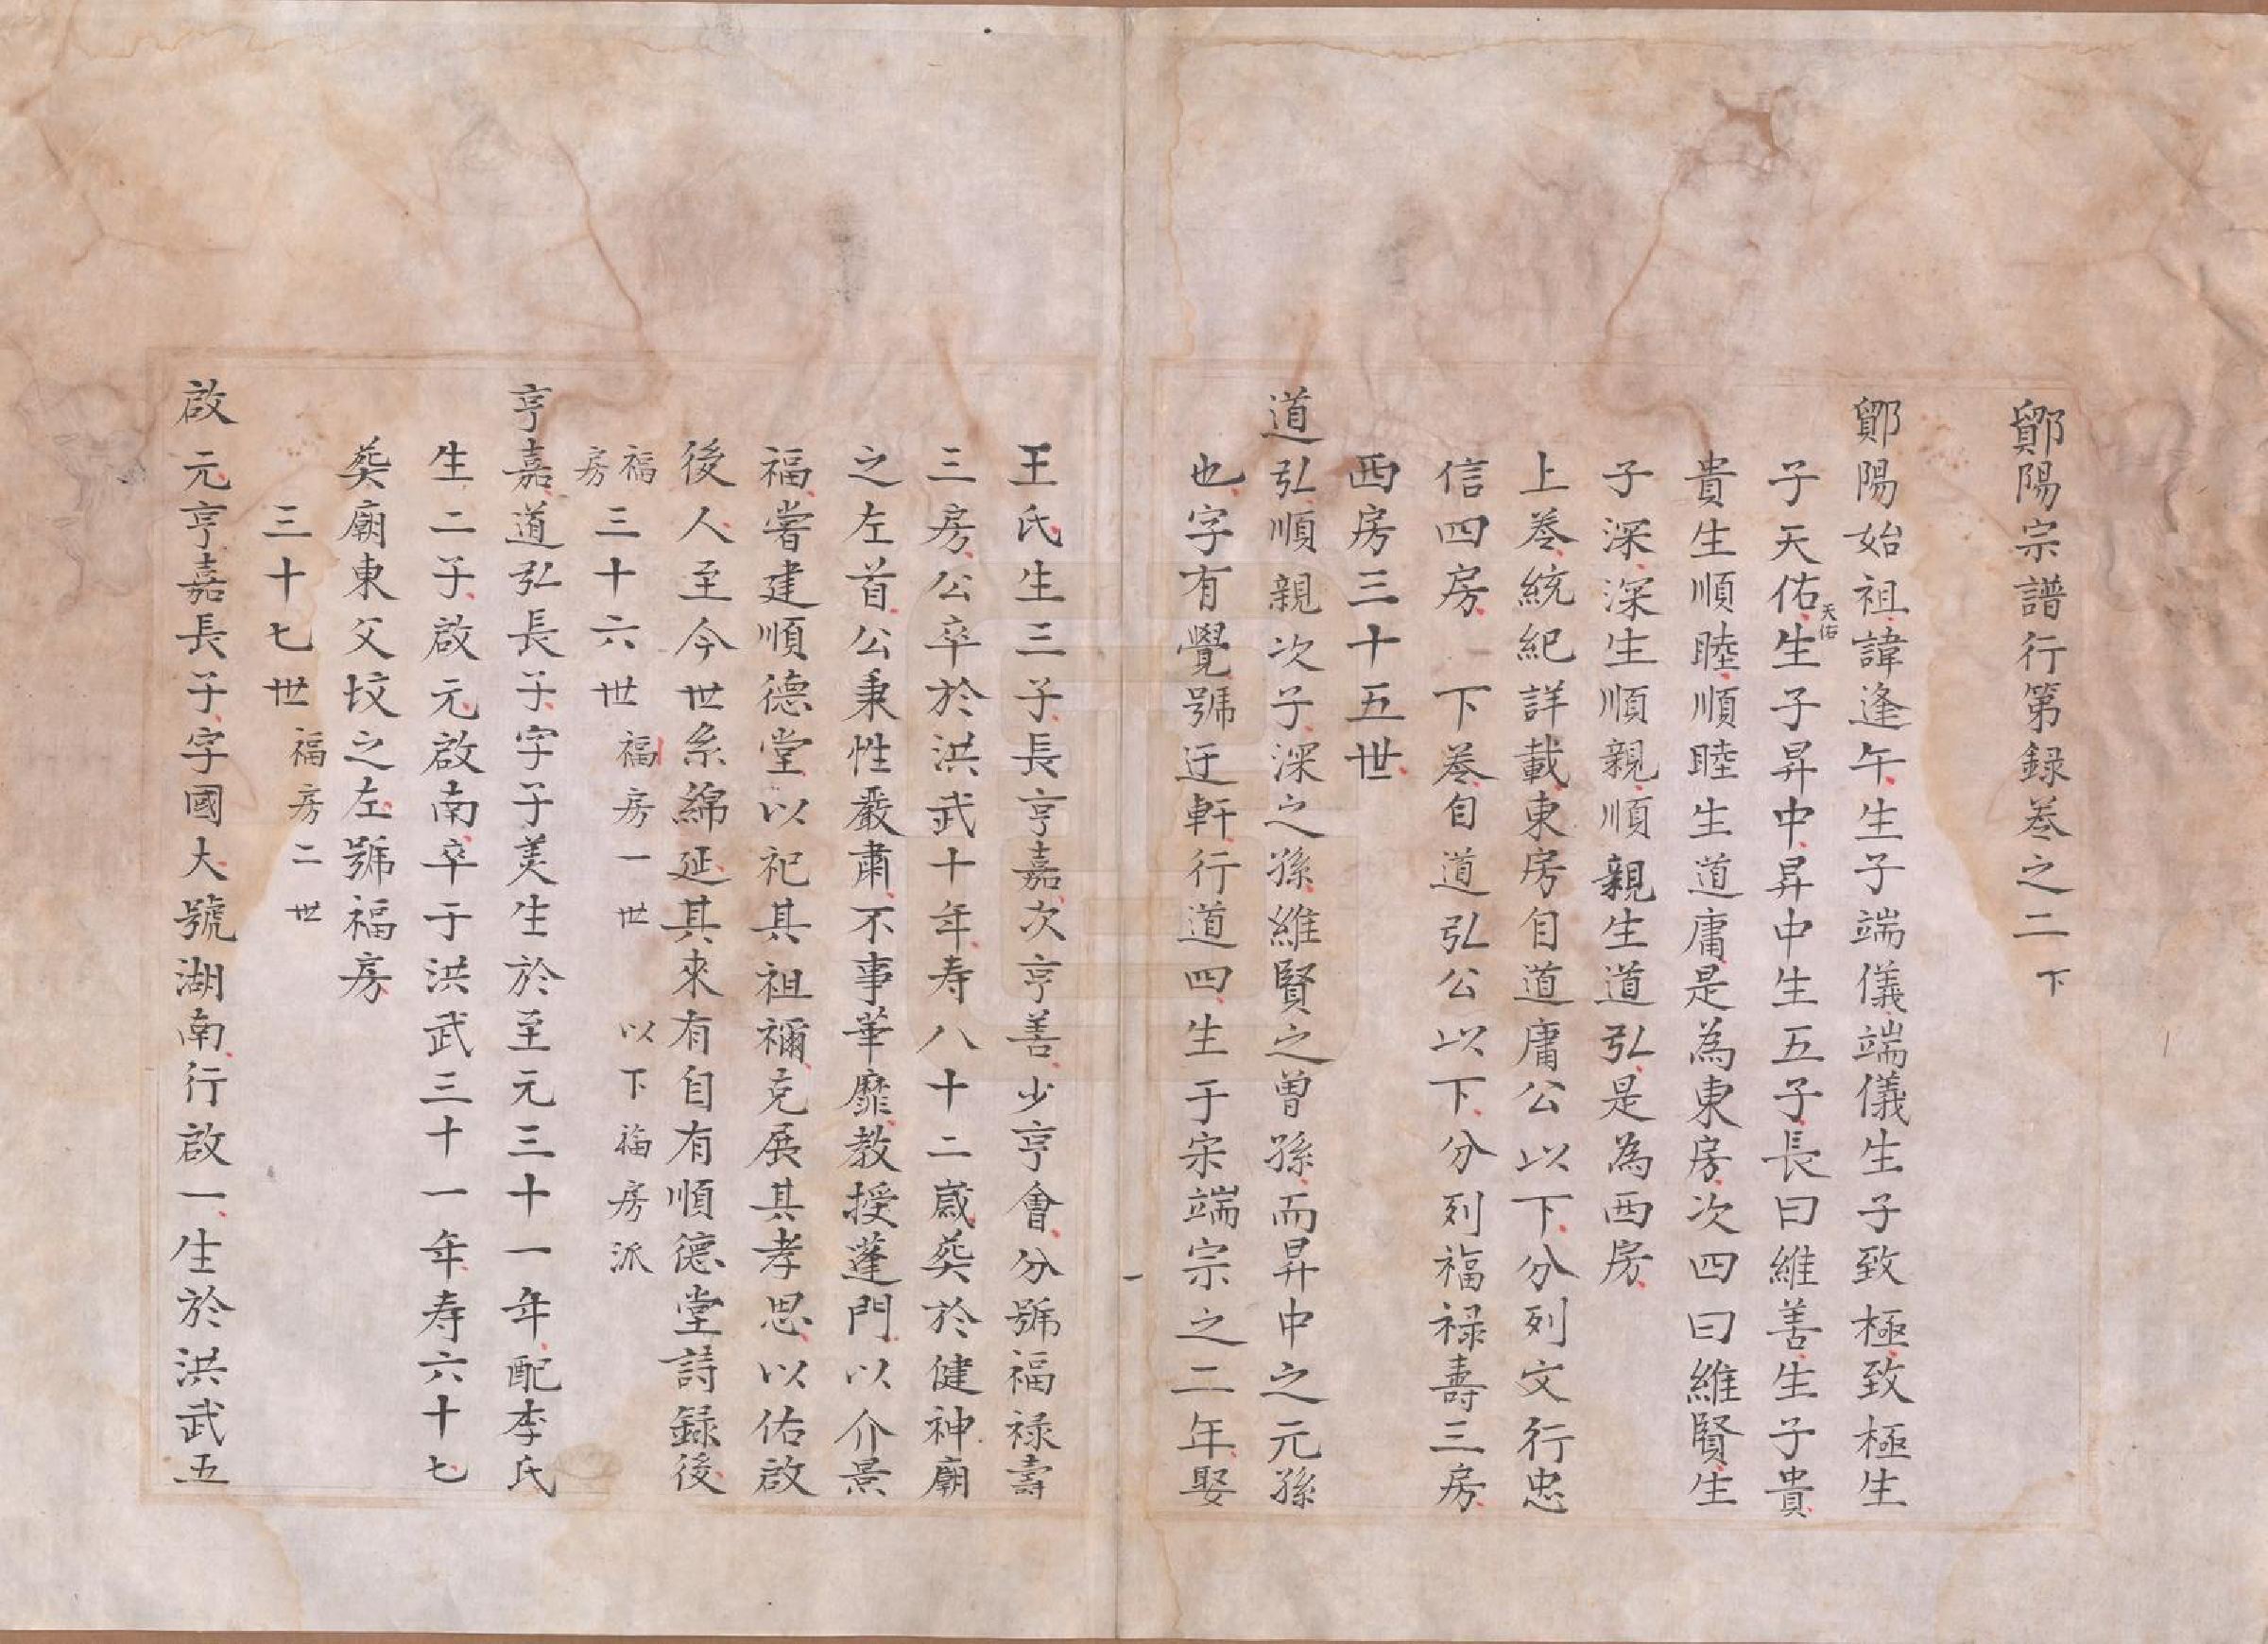 鄮陽宗譜行第録卷之二 下
鄮陽始祖諱逢午生子端儀端儀生子致極致極生
子天佑天佑生子昇中昇中生五子長曰維善生子貴
貴生順睦順睦生道庸是為東房次四曰維賢生
子深深生順親順親生道弘是為西房
上卷統紀詳載東房自道庸公以下分列文行忠
信四房 下卷自道弘公以下分列福禄壽三房
西房三十五世
道弘順親次子深之孫維賢之曾孫而昇中之元孫
也字有覺號迂軒行道四生于宋端宗之二年娶
王氏生三子長亨嘉次亨善少亨會分號福禄壽
三房公卒於洪武十年寿八十二歲葬於健神廟
之左首公秉性嚴肅不事華靡教授蓬門以介景
福嘗建順德堂以祀其祖禰克展其孝思以佑啟
後人至今世系綿延其來有自有順德堂詩録後
福房 三十六世 福房一世 以下福房派
亨嘉道弘長子字子美生於至元三十一年配李氏
生二子啟元啟南卒于洪武三十一年寿六十七
葬廟東父坟之左號福房
三十七世 福房二世
啟元亨嘉長子字國大號湖南行啟一生於洪武五
一